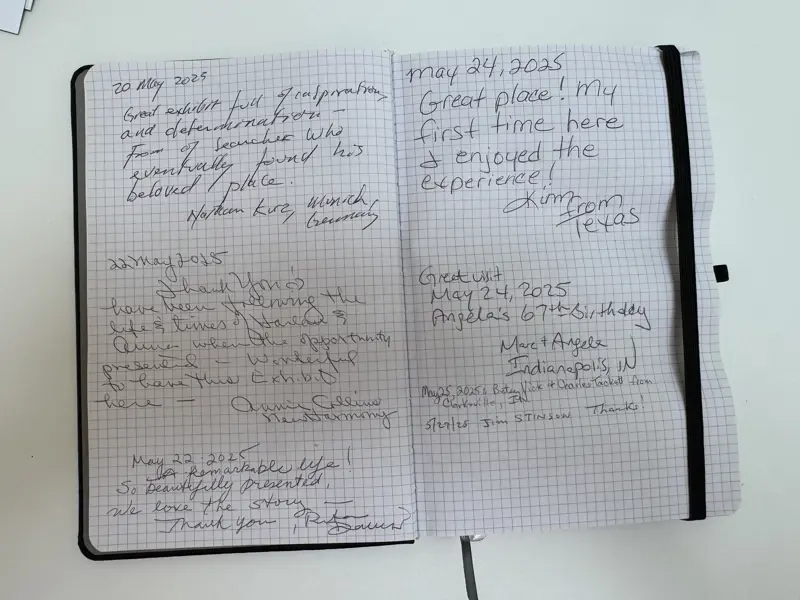 20 May 2025
Great exhibit full of inspiration
and determination —
From of searcher who
eventually found his
beloved place.
Nathan Kurz, Munich,
Germany
22 May 2025
Thank You!
have been the
life & times of Harlan &
Anna when the opportunity
presened — Wonderful
to have this Exhibit
here — Annie Collins
New Harmony
May 22, 2025
A Remarkable life!
So beautifully presented,
we love the story —
Thank you,
May 24, 2025
Great place! My
first time here
& enjoyed the
experience!
Kim from
Texas
Great visit
May 24, 2025
Angela's 67th Birthday
Marc + Angela
Indianapolis, IN
May 25, 2025 Betsy Vick + Charles Tackett from
Clarksville, IN
5/27/25 Jim STINSON Thanks!